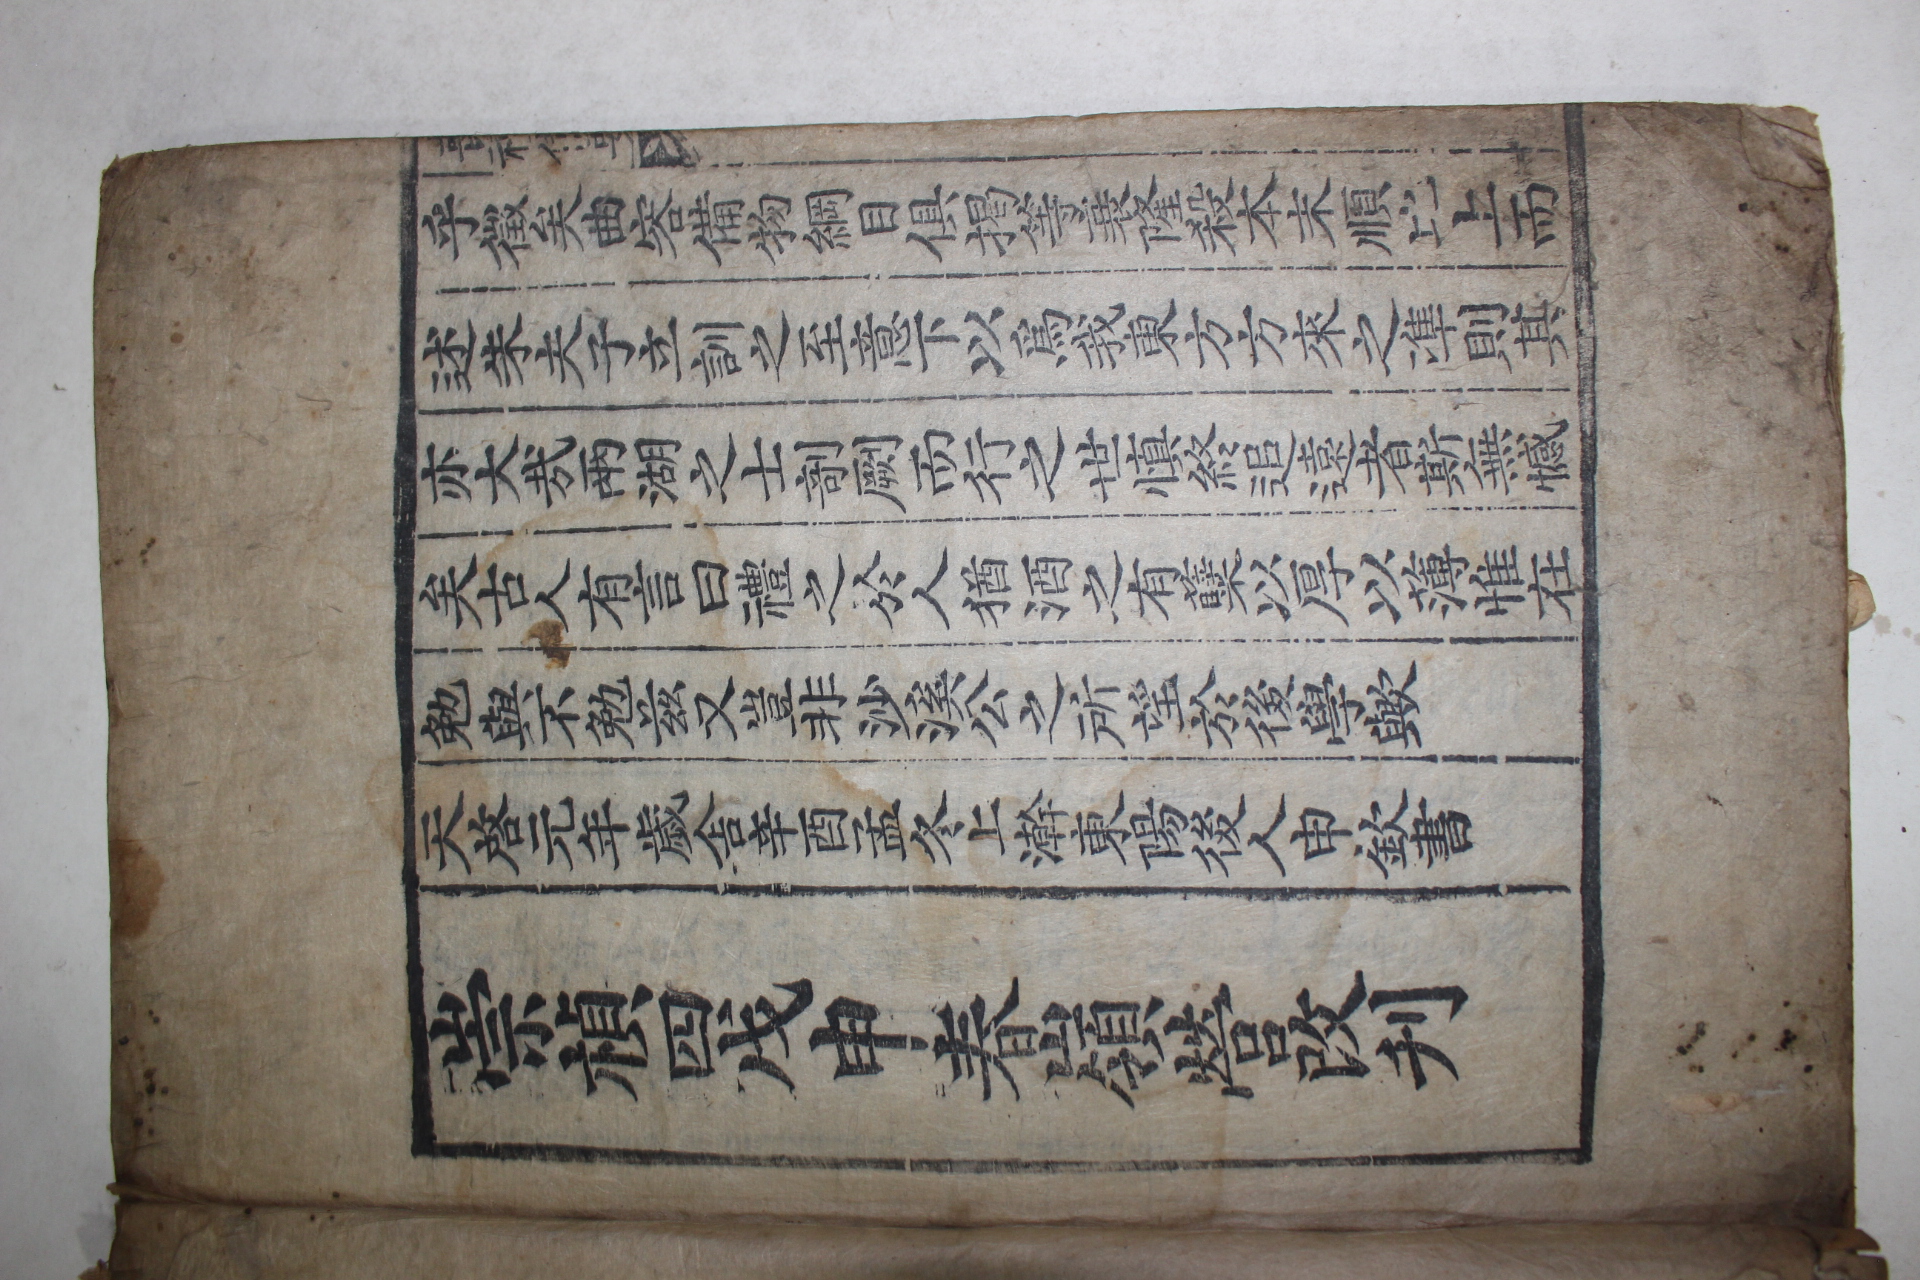 乎徵矣曲容備物綱目俱揭等衰隆殺本末順比上而
述朱夫子立訓之至意下以爲我東方方來之凖則其
亦大哉兩湖之士剞劂而行之世慎終追遠者斯無憾
矣古人有言曰禮之於人猶酒之有蘖以厚以薄惟在
勉與不勉兹又豈非沙溪公之所望於後學歟
天啓元年歲舍辛酉孟冬上澣東陽後人申欽書
崇禎四戊申春嶺營改刊